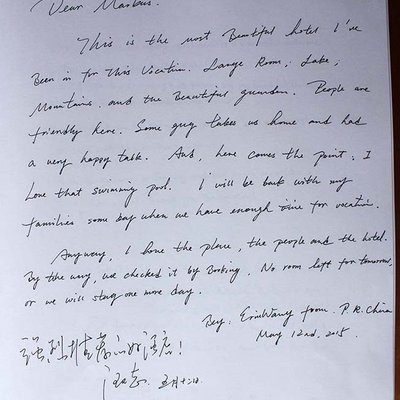 Dear Markus.
This is the most Beautiful hotel I've
Been in for this Vacation. Large Room, Lake,
Mountains, and the Beautiful guarden. People are
friendly here. Some guy takes us home and had
a very happy talk. And, here comes the point, I
Love that swimming pool. I will be back with my
families some day when we have enough time for vacation.
Anyway, I love the place, the people and the hotel.
By the way, we checked it by Booking. No room left for tomorrow,
or we will stay one more day.
By: Eric Wang from P.R. China
May 12nd, 2015.
强烈推荐的好酒店!
五月十二日.